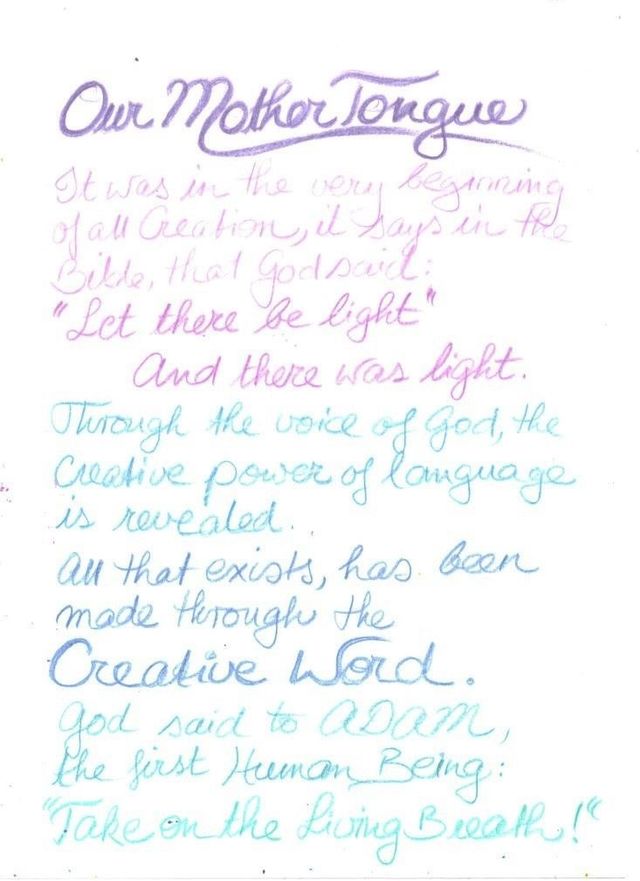 Our Mother Tongue
It was in the very beginning
of all Creation, it says in the
Bible, that God said:
"Let there be light"
And there was light.
Through the voice of God, the
Creative power of language
is revealed.
All that exists, has been
made through the
Creative Word.
God said to ADAM,
the first Human Being:
"Take on the Living Breath!"